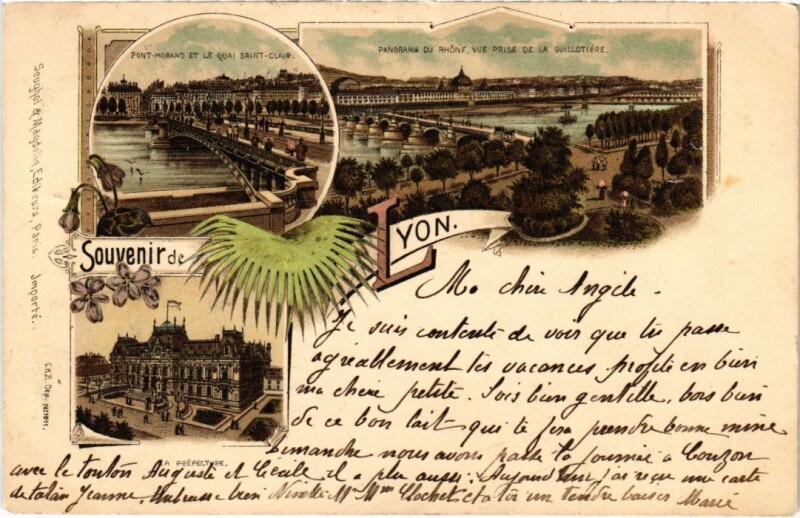 PONT-MORAND ET LE QUAI SAINT-CLAIR.
PANORAMA DU RHÔNE, VUE PRISE DE LA GUILLOTIÈRE.
Souvenir de LYON.
LA PRÉFECTURE.
Editeurs, Paris. Importé.
Ma chère Angèle -
Je suis contente de voir que tu passe
agréablement tes vacances profite en bien
ma chère petite. Sois bien gentille, bois bien
de ce bon lait qui te fera prendre bonne mine
Dimanche nous avons passé la journée a Couzon
avec le tonton Auguste et Cécile il a plu aussi. Aujourd'hui j'ai reçu une carte
de Jeanne. Embrasse bien Ninette Mr Mme et a toi un tendre baiser Marie